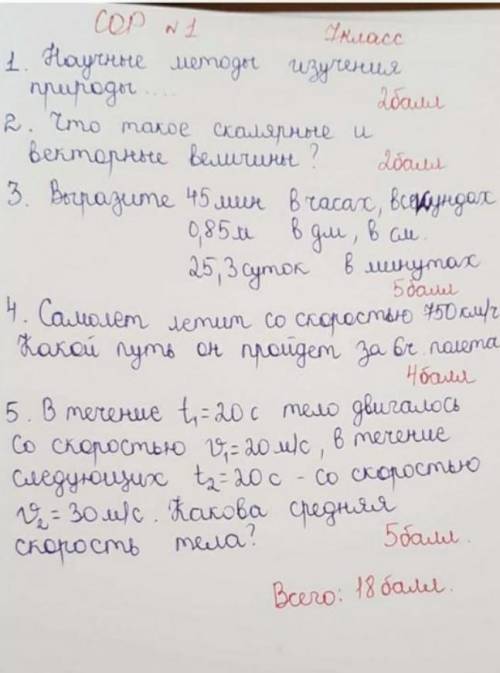 СОР №1 7класс
1. Научные методы изучения
природы.... 2балл
2. Что такое скалярные и
векторные величины? 2балл
3. Выразите 45мин в часах, в секундах
0,85м в дм, в см.
25,3суток в минутах
5балл
4. Самолет летит со скоростью 750км/ч
Какой путь он пройдет за 6ч. полета
4балл
5. В течение t₁=20с тело двигалось
со скоростью υ₁=20м/с, в течение
следующих t₂=20с - со скоростью
υ₂=30м/с. Какова средняя
скорость тела? 5балл.
Всего: 18балл.